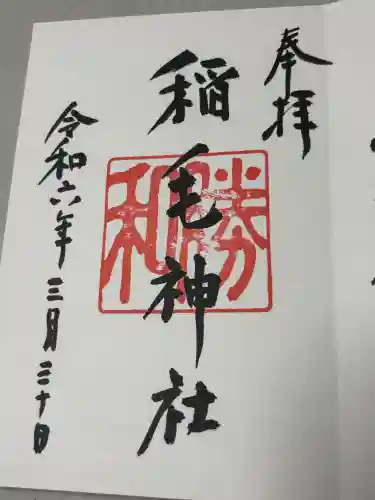 奉拝
稲毛神社
勝和
令和六年三月三十日